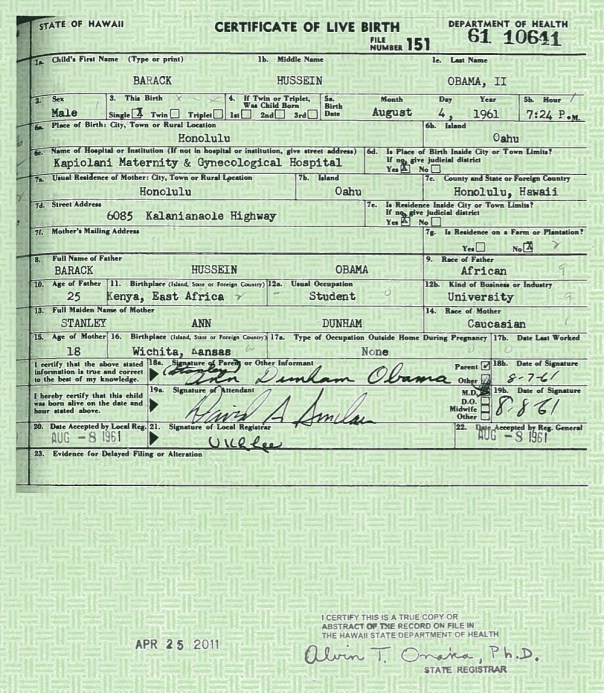 STATE OF HAWAII CERTIFICATE OF LIVE BIRTH DEPARTMENT OF HEALTH
FILE NUMBER 151 61 10641
1a. Child's First Name (Type or print) 1b. Middle Name 1c. Last Name
BARACK HUSSEIN OBAMA, II
2. Sex 3. This Birth 4. If Twin or Triplet, Was Child Born 5a. Birth Date Month Day Year 5b. Hour
Male Single X Twin Triplet 1st 2nd 3rd August 4, 1961 7:24 P.M.
6a. Place of Birth: City, Town or Rural Location 6b. Island
Honolulu Oahu
6c. Name of Hospital or Institution (If not in hospital or institution, give street address) 6d. Is Place of Birth Inside City or Town Limits? If no, give judicial district
Kapiolani Maternity & Gynecological Hospital Yes X No
7a. Usual Residence of Mother: City, Town or Rural Location 7b. Island 7c. County and State or Foreign Country
Honolulu Oahu Honolulu, Hawaii
7d. Street Address 7e. Is Residence Inside City or Town Limits? If no, give judicial district
6085 Kalanianaole Highway Yes X No
7f. Mother's Mailing Address 7g. Is Residence on a Farm or Plantation?
Yes No X
8. Full Name of Father 9. Race of Father
BARACK HUSSEIN OBAMA African
10. Age of Father 11. Birthplace (Island, State or Foreign Country) 12a. Usual Occupation 12b. Kind of Business or Industry
25 Kenya, East Africa Student University
13. Full Maiden Name of Mother 14. Race of Mother
STANLEY ANN DUNHAM Caucasian
15. Age of Mother 16. Birthplace (Island, State or Foreign Country) 17a. Type of Occupation Outside Home During Pregnancy 17b. Date Last Worked
18 Wichita, Kansas None
I certify that the above stated information is true and correct to the best of my knowledge. 18a. Signature of Parent or Other Informant Parent Other 18b. Date of Signature
(Stanley) Ann Dunham Obama 8-7-61
I hereby certify that this child was born alive on the date and hour stated above. 19a. Signature of Attendant M.D. D.O. Midwife Other 19b. Date of Signature
David A Sinclair 8-8-61
20. Date Accepted by Local Reg. 21. Signature of Local Registrar 22. Date Accepted by Reg. General
AUG -8 1961 U K L Lee AUG -8 1961
23. Evidence for Delayed Filing or Alteration
I CERTIFY THIS IS A TRUE COPY OR
ABSTRACT OF THE RECORD ON FILE IN
THE HAWAII STATE DEPARTMENT OF HEALTH
APR 25 2011 Alvin T. Onaka, Ph.D.
STATE REGISTRAR